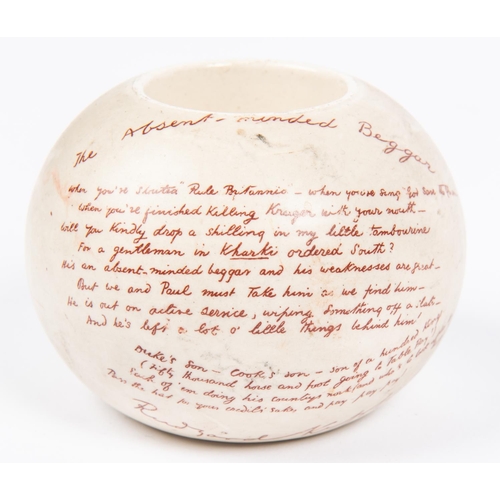 The Absent-minded Beggar
When you've shouted "Rule Britannia - when you've sung God save
When you've finished Killing Kruger with your mouth -
Will you Kindly drop a shilling in my little tambourine
For a gentleman in Kharki ordered South?
He's an absent-minded beggar and his weaknesses are great -
But we and Paul must take him as we find him -
He is out on active service, wiping something off a slate -
And he's left a lot o' little things behind him
Duke's son - Cook's son - son of a hundred Kings
(Fifty thousand horse and foot going to Table Bay
Each of 'em doing his country's work and who's to look
Pass the hat for your credit's sake, and pay - pay - pay
Rudyard